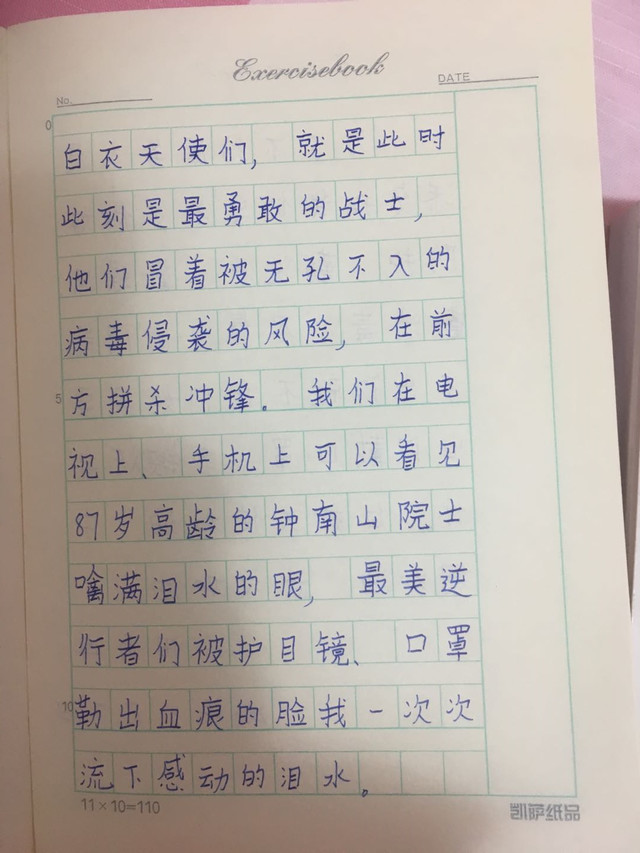 Exercisebook
No.
DATE
0
白衣天使们，就是此时
此刻是最勇敢的战士，
他们冒着被无孔不入的
病毒侵袭的风险，在前
5
方拼杀冲锋。我们在电
视上、手机上可以看见
87岁高龄的钟南山院士
噙满泪水的眼，最美逆
行者们被护目镜、口罩
10
勒出血痕的脸我一次次
流下感动的泪水。
11×10=110
凯萨纸品